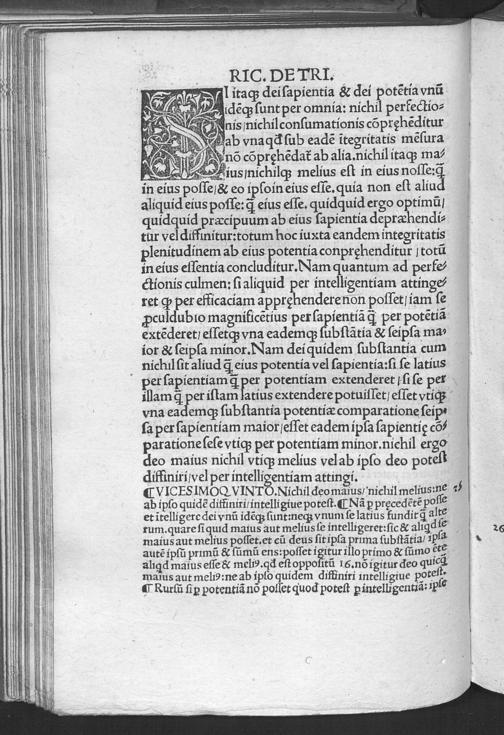 RIC. DE TRI.
SI itaq; dei sapientia & dei potẽtia vnũ
idẽq; sunt per omnia: nichil perfectio-
nis/ nichil consumationis cõpręhẽditur
ab vna qđ sub eadẽ ĩtegritatis mẽsura
nõ cõpręhẽdat̃ ab alia. nichil itaq; ma-
ius/ nichilq; melius est in eius nosse: q̃
in eius posse/ & eo ipso in eius esse. quia non est aliud
aliquid eius posse: q̃ eius esse. quidquid ergo optimũ/
quidquid præcipuum ab eius sapientia depræhendi-
tur vel diffinitur: totum hoc iuxta eandem integritatis
plenitudinem ab eius potentia conpręhenditur/ totũ
in eius essentia concluditur. Nam quantum ad perfe-
ctionis culmen: si aliquid per intelligentiam attinge-
ret q; per efficaciam appręhendere non posset/ iam se
ꝓculdubio magnificẽtius per sapientiã q̃ per potẽtiã
extẽderet/ essetq; vna eademq; substãtia & seipsa ma-
ior & seipsa minor. Nam dei quidem substantia cum
nichil sit aliud q̃ eius potentia vel sapientia: si se latius
per sapientiam q̃ per potentiam extenderet/ si se per
illam q̃ per istam latius extendere potuisset/ esset vtiq;
vna eademq; substantia potentiæ comparatione seip-
sa per sapientiam maior/ esset eadem ipsa sapientię cõ-
paratione sese vtiq; per potentiam minor. nichil ergo
deo maius nichil vtiq; melius vel ab ipso deo potest
diffiniri/ vel per intelligentiam attingi.
¶ VICESIMOQVINTO. Nichil deo maius/ nichil melius: ne
ab ipso quidẽ diffiniri/ intelligiue potest. ¶ Nã p precedẽtẽ posse
et ĩtelligere dei vnũ idẽq; sunt: neq; vnum se latius fundit q̃ alte
rum. quare si quid maius aut melius se intelligeret: sic & aliqd se
maius aut melius posset. et cũ deus sit ipsa prima substãtia/ ipsa
autẽ ipsũ primũ & sũmũ ens: posset igitur illo primo & sũmo ẽte
aliqd maius esse & meliꝰ. qđ est oppositũ 16. nõ igitur deo quicq̃
maius aut meliꝰ: ne ab ipso quidem diffiniri intelligiue potest.
¶ Rursũ si p potentiã nõ posset quod potest p intelligentiã: ipse
25
26